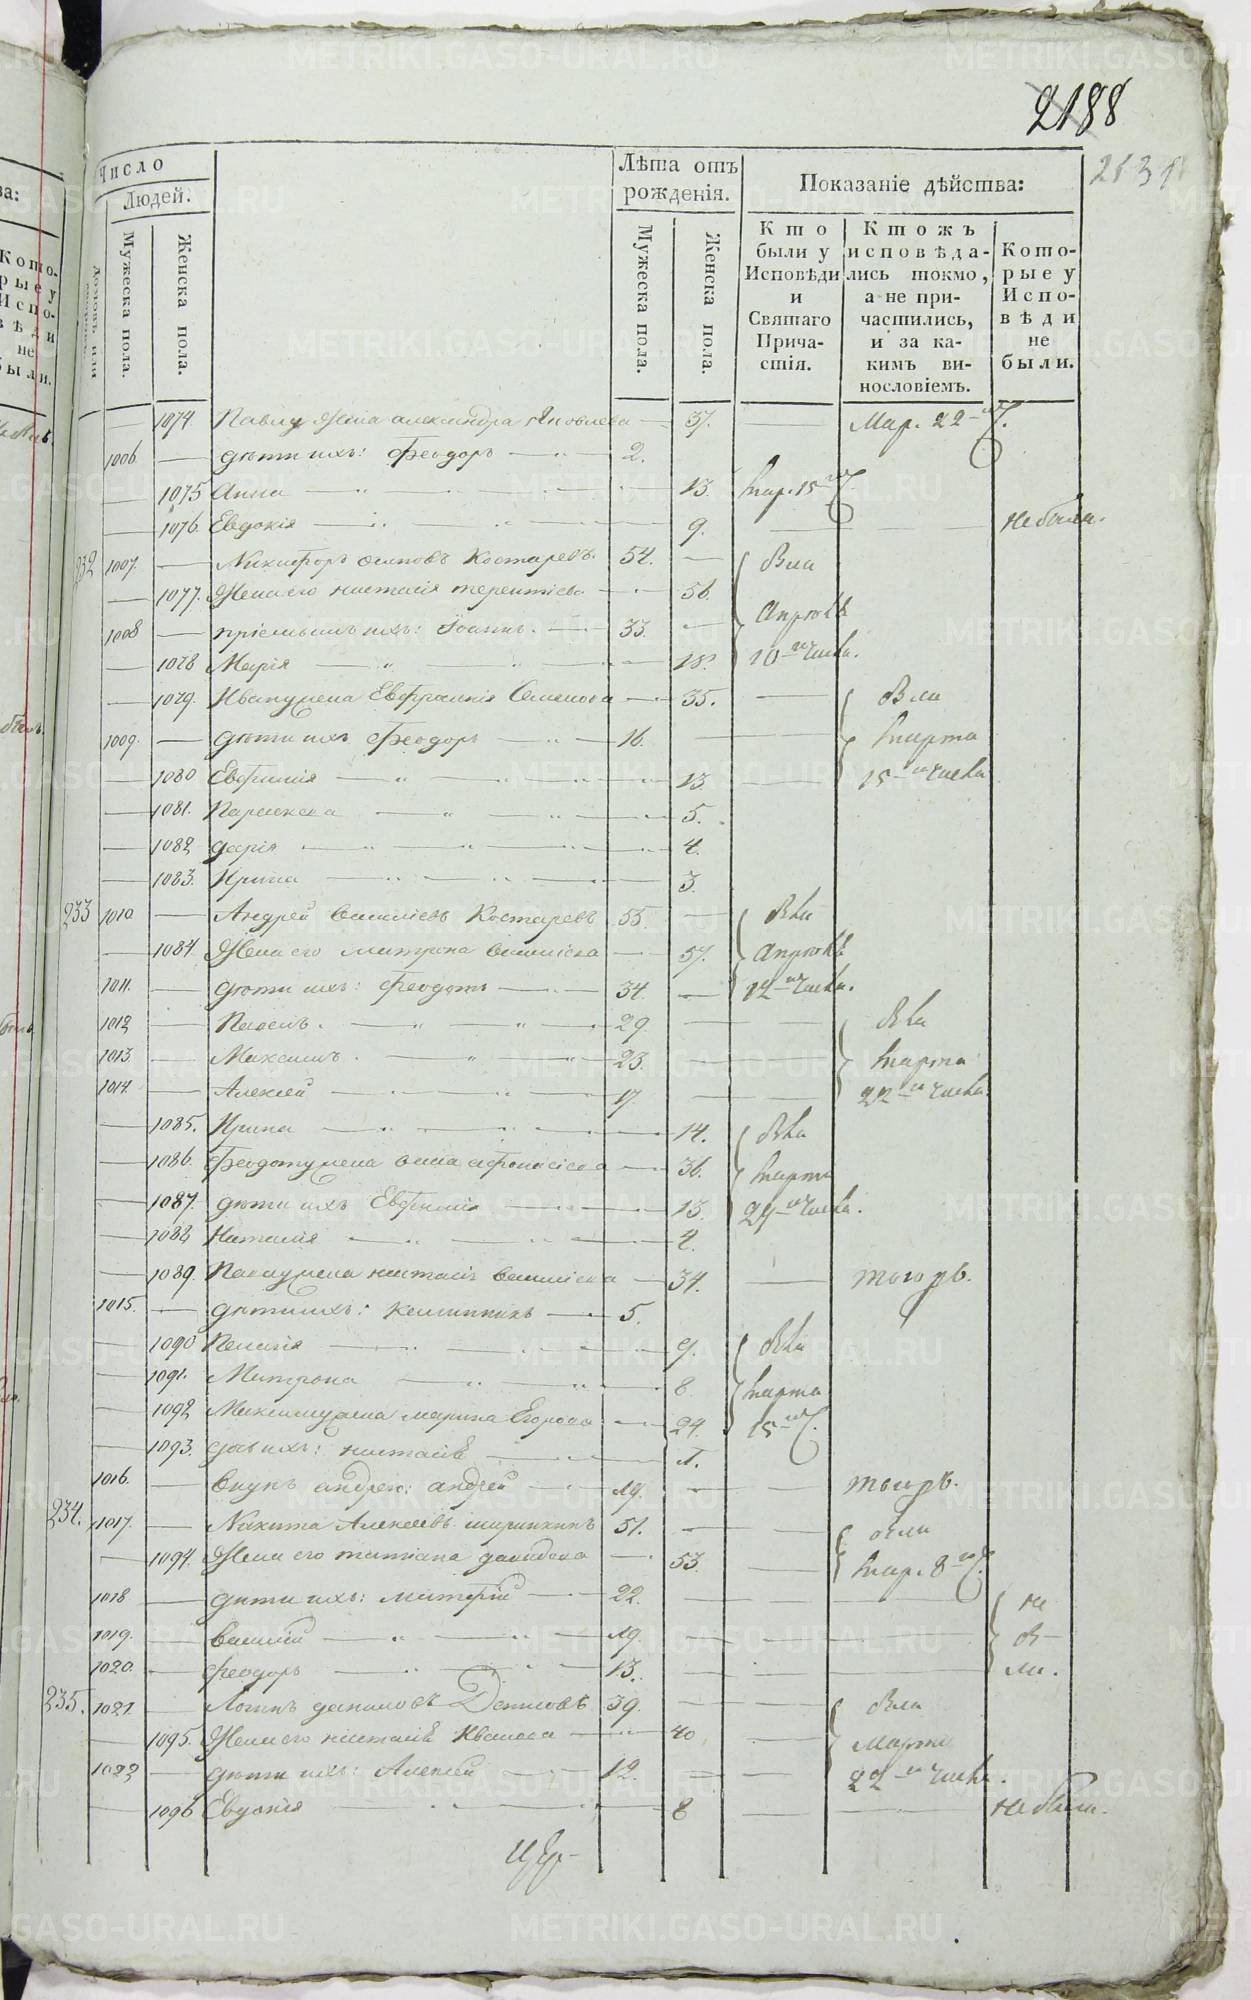 2188
213
Число
Людей.
Мужеска пола.
Женска пола.
Лѣта отъ рожденія.
Мужеска пола.
Женска пола.
Показаніе дѣйства:
Кто были у Исповѣди и Святаго Причастія.
Ктожъ исповѣдались токмо, а не причастились, и за какимъ винословіемъ.
Которые у Исповѣди не были.
— 1074. Павлу жена александра Яковлева — 37. — Мар. 22
1006. — дѣти ихъ: Феодоръ — 2.
— 1075 Анна — 13. мар. 15
— 1076. Евдокія — 9. — не были.
232 1007. — Никифоръ осиповъ Костаревъ. 54. — были
— 1077. Жена его настасія терентіева — 56. апрѣля
1008 — ихъ: Іоаннъ. — 33. —
— 1078 Марія — 18. 10 числа.
— 1079. Ивану жена Евфросинія Семенова — 35. — были
1009. — дѣти ихъ Феодоръ — 16. — марта
— 1080 Евфимія — 13. — 15 числа
— 1081. Параскева — 5.
— 1082 дарія — 4.
— 1083. Ирина — 3.
233 1010. — Андрей Василіевъ Костаревъ 55. — были
— 1084. Жена его матрона василіева — 57. апрѣля
1011. — дѣти ихъ: Феодотъ — 34. — 12 числа.
1012 — 29. — были
1013. — Максимъ. — 23. — марта
1014. — Алексей — 17. — 22 числа.
— 1085. Ирина — 14. были
— 1086. Феодоту жена афонасіева — 36. марта
— 1087. дѣти ихъ Евфимія — 13. 29 числа.
— 1088 Наталія — 4.
— 1089. жена настасія василіева — 34. — тогожъ.
1015. — дѣти ихъ: — 5.
— 1090 Пелагія — 9. были
— 1091. Матрона — 8. марта
— 1092 Максиму жена марина Егорова — 24. 15
— 1093. дочь ихъ: настасія — 1.
1016. — внукъ андрею: андрей — 19. — тогожъ.
234. 1017. — Никита Алексеевъ 51. — были
— 1094. Жена его татіана давидова — 53. — мар. 8
1018 — дѣти ихъ: — 22. — не
1019. — Василій — 19. — бы-
1020. — феодоръ — 13. — ли.
235. 1021. — Логинъ даниловъ Денисовъ 39. — были
— 1095. Жена его настасія Иванова — 40 — Марта
1022 — дѣти ихъ: Алексей — 12. — 22 числа.
— 1096 Евдокія — 8 — не были.
METRIKI.GASO-URAL.RU